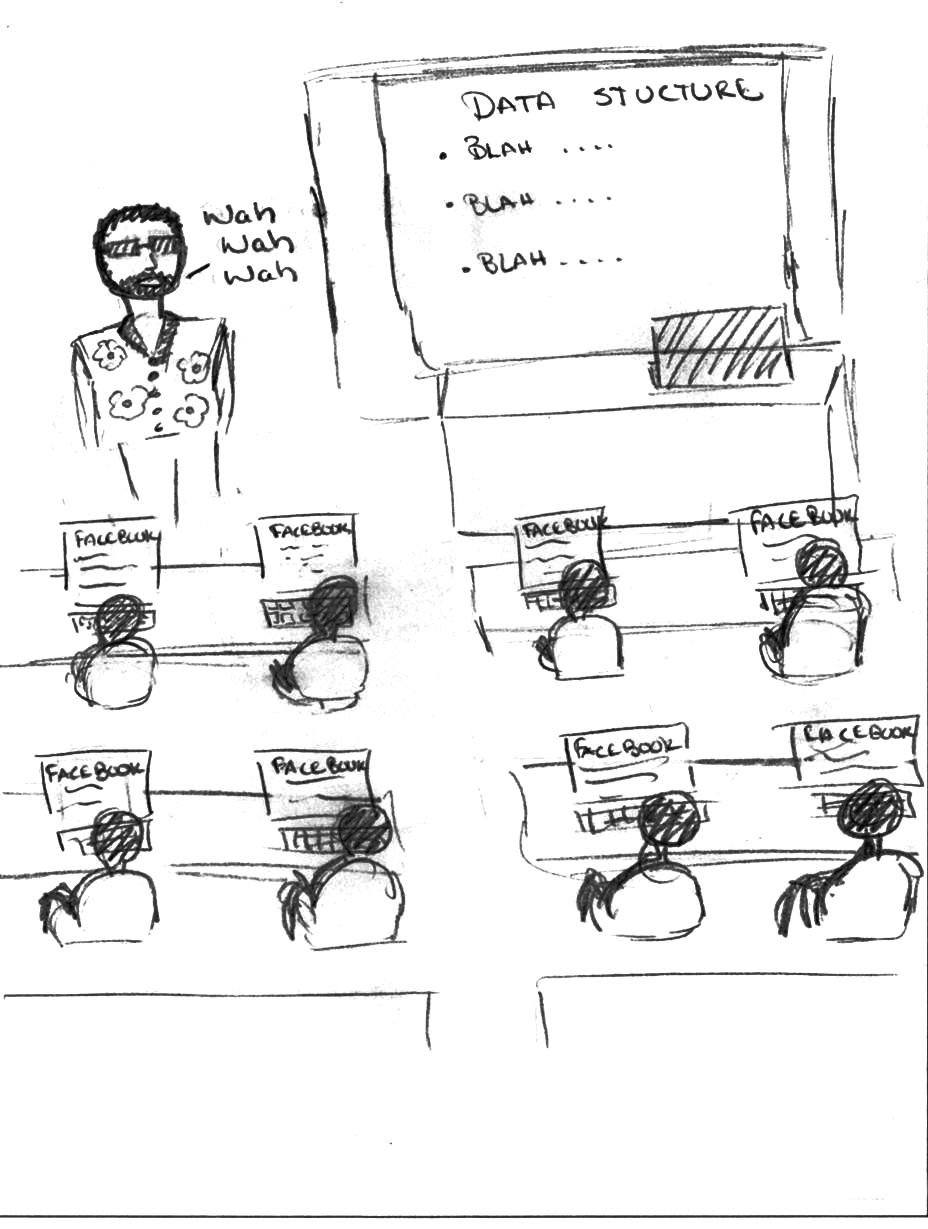 DATA STUCTURE
• BLAH ....
• BLAH ....
• BLAH ....
Wah
Wah
Wah
FACEBOOK
FACEBOOK
FACEBOOK
FACEBOOK
FACEBOOK
FACEBOOK
FACEBOOK
FACEBOOK